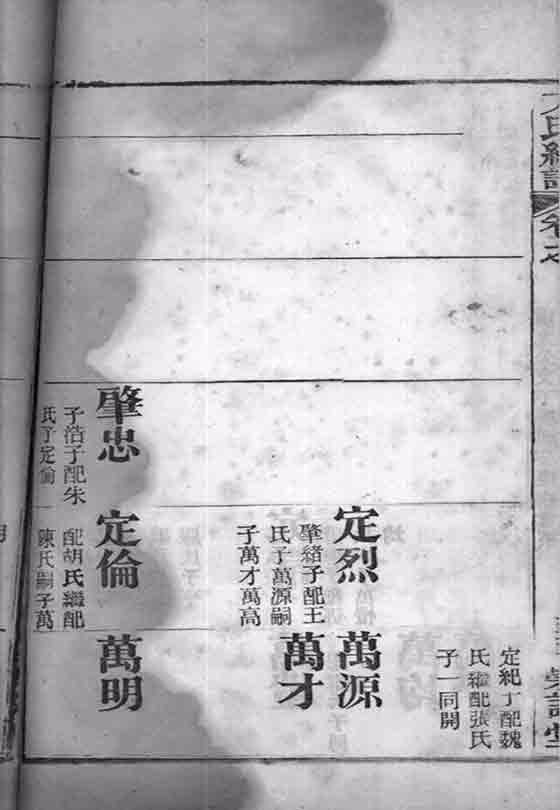 氏
卷七
定紀丁配魏
氏繼配張氏
子一同開
定烈
肇緒子配王
氏子萬源嗣
子萬才萬高
萬源
萬才
肇忠
子浩子配朱
氏子定倫
定倫
配胡氏繼配
陳氏嗣子萬
萬明